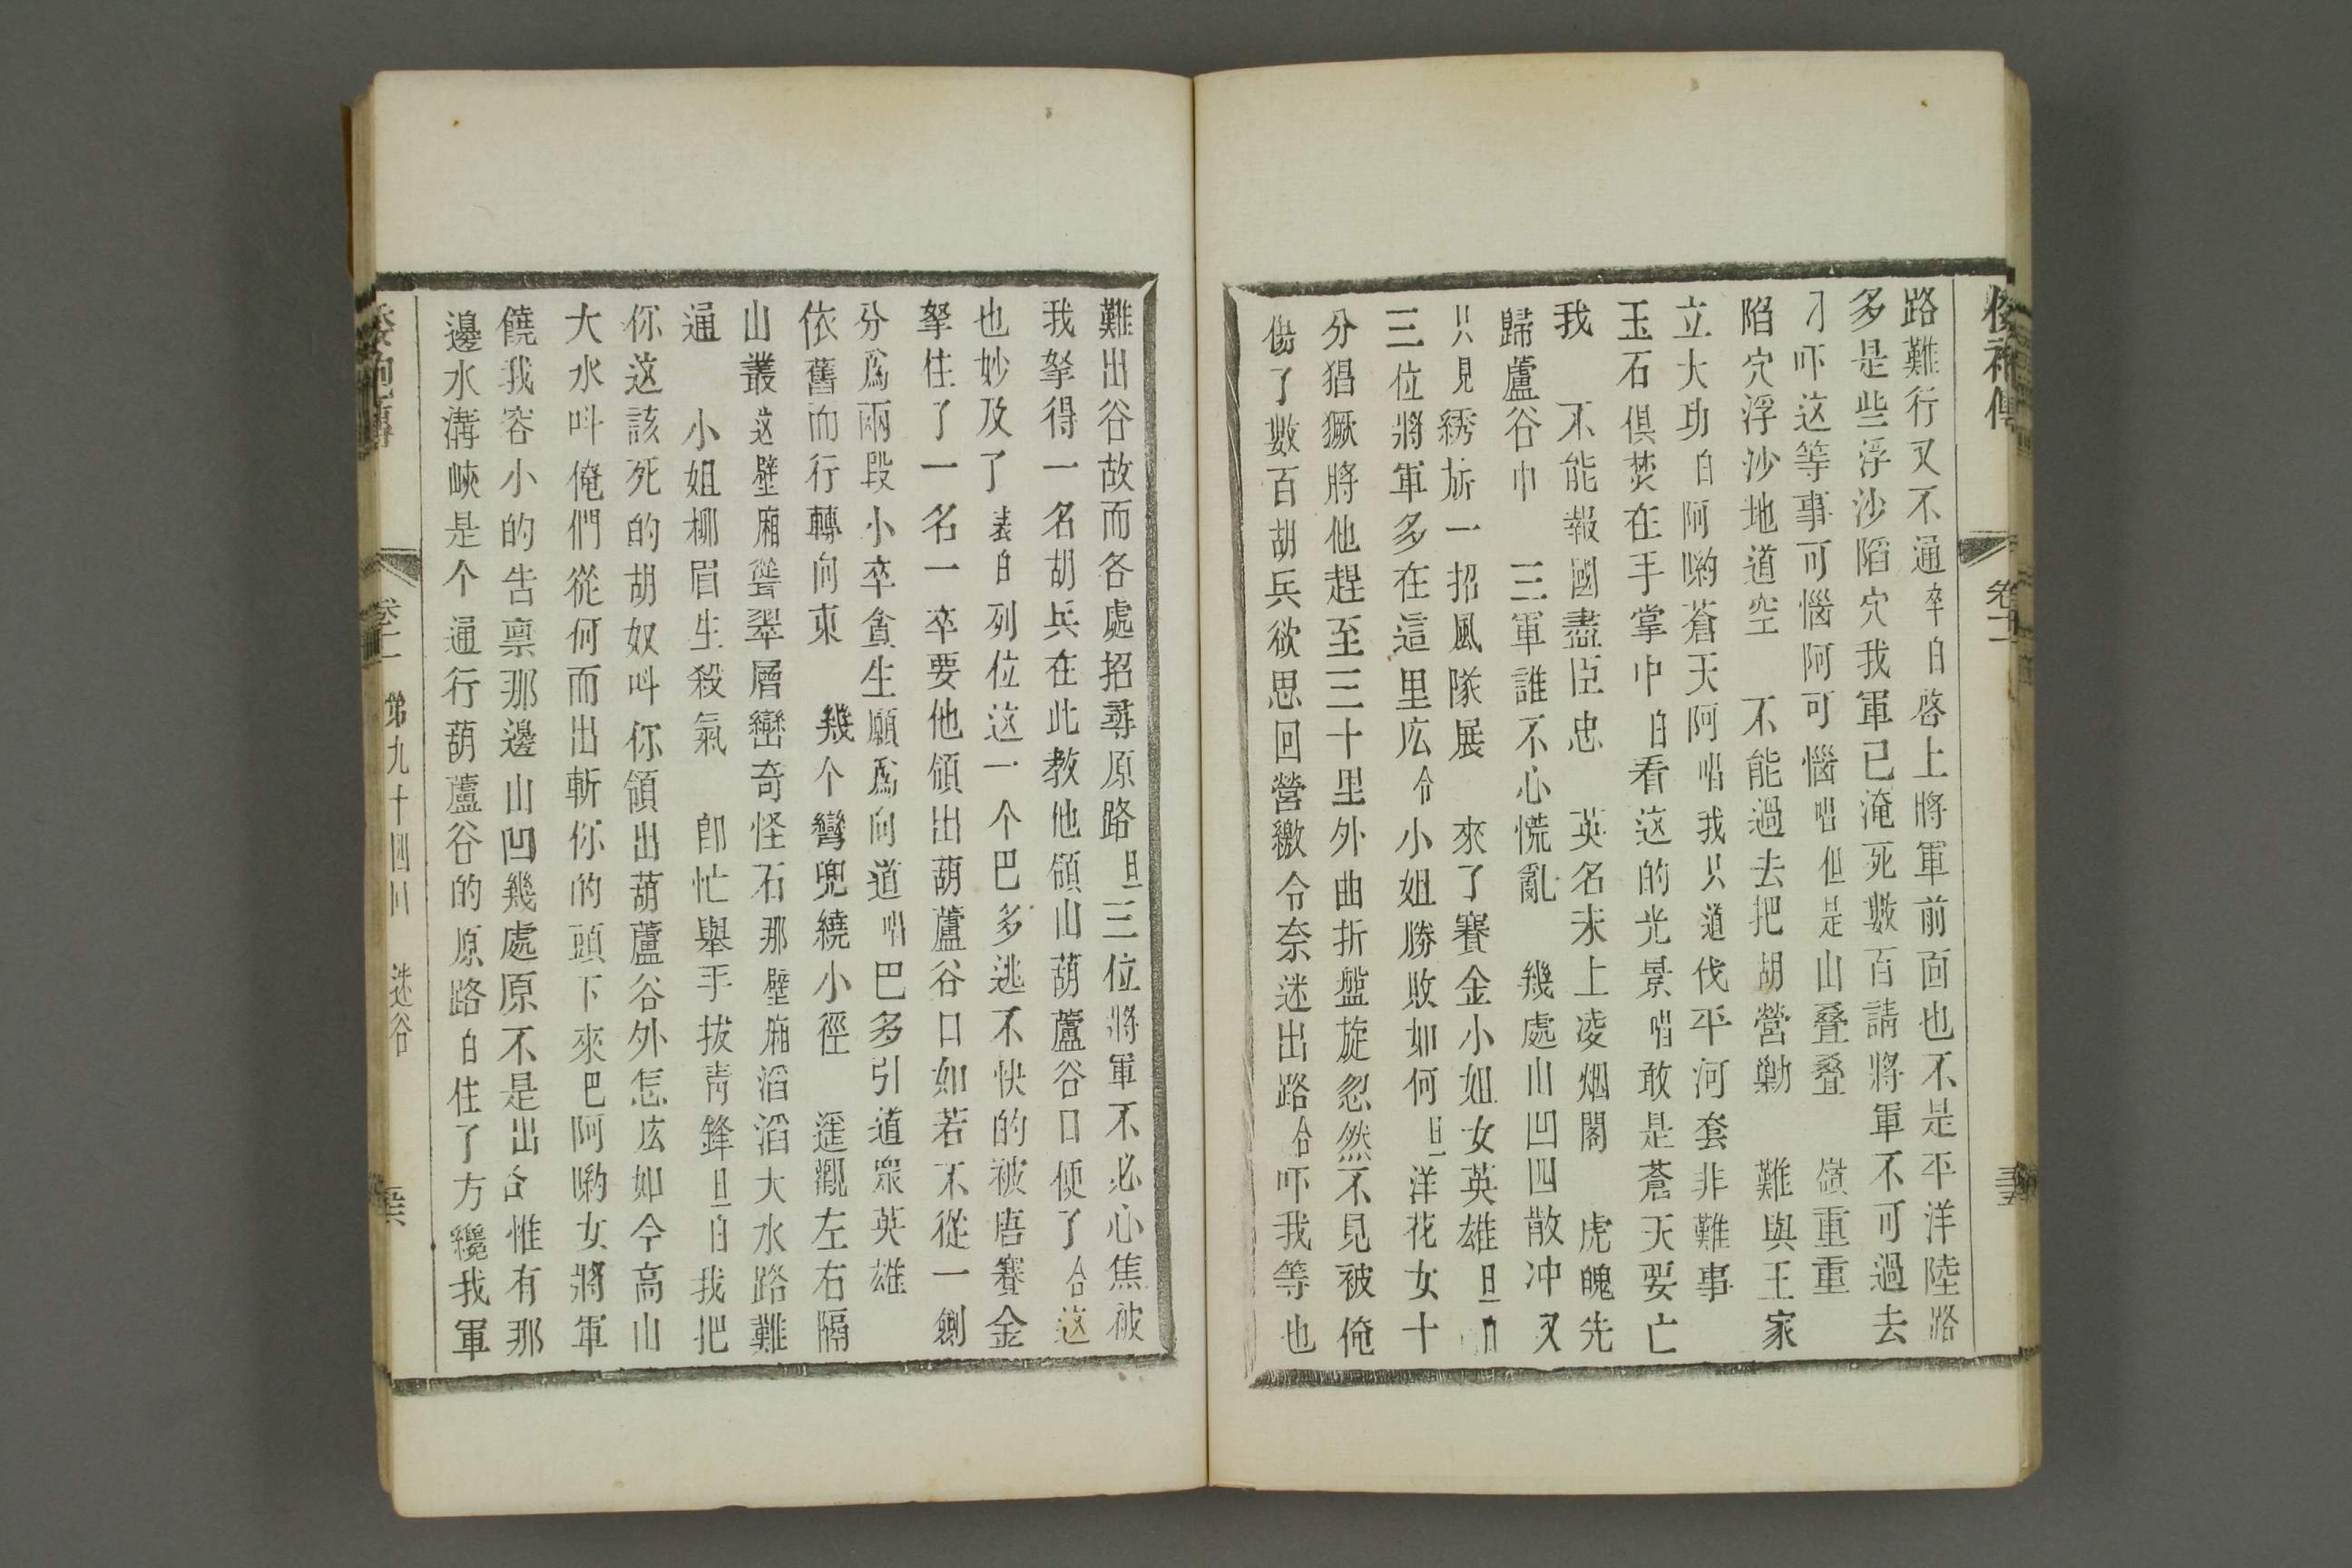 路難行又不通卒白啓上將軍前面也不是平洋陸路
多是些浮沙陷穴我軍已淹死數百請將軍不可過去
吓这等事可惱阿可惱唱但是山叠叠 嶺重重
陷穴浮沙地道空 不能過去把胡營勦 難與王家
立大功白阿喲蒼天阿唱我只道伐平河套非難事
玉石俱焚在手掌中白看这的光景唱敢是蒼天要亡
我 不能報國盡臣忠 英名未上凌烟閣 虎魄先
歸蘆谷中 三軍誰不心慌亂 幾處山凹四散冲又
只見綉旂一招風隊展 來了賽金小姐女英雄旦
三位將軍多在這里庅仝小姐勝敗如何旦洋花女十
分猖獗將他趕至三十里外曲折盤旋忽然不見被俺
傷了數百胡兵欲思回營繳令奈迷出路仝吓我等也
難出谷故而各處招尋原路旦三位將軍不必心焦被
我拏得一名胡兵在此教他領山葫蘆谷口便了仝这
也妙及了表白列位这一个巴多逃不快的被唐賽金
拏住了一名一卒要他領出葫蘆谷口如若不從一劍
分爲兩段小卒貪生願爲向道唱巴多引道眾英雄
依舊而行轉向東 幾个彎兜繞小徑 遥觀左右隔
山叢这壁廂聳翠層巒奇怪石那壁廂滔滔大水路難
通 小姐柳眉生殺氣 卽忙舉手拔青鋒旦白我把
你这該死的胡奴呌你領出葫蘆谷外怎庅如今高山
大水呌俺們從何而出斬你的頭下來巴阿喲女將軍
饒我容小的告禀那邊山凹幾處原不是出谷惟有那
邊水溝峽是个通行葫蘆谷的原路白住了方纔我軍
卷十二 第九十四回 迷谷